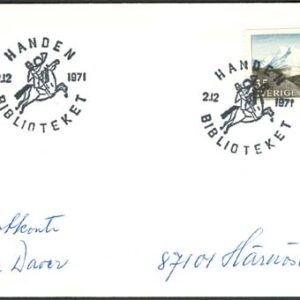 HANDEN
2.12 1971
BIBLIOTEKET
HANDEN
2.12 1971
BIBLIOTEKET
35
SVERIGE
87101 Härnös